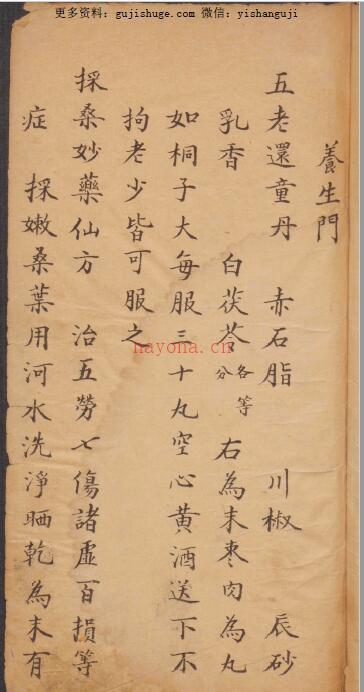 更多资料：gujishuge.com 微信：yishanguji
養生門
五老還童丹 赤石脂 川椒 辰砂
乳香 白茯苓各等分 右為末棗肉為丸
如桐子大每服三十丸空心黄酒送下不
拘老少皆可服之
採桑妙藥仙方 治五勞七傷諸虛百損等
症 採嫩桑葉用河水洗淨晒乾為末有
nayona.cn